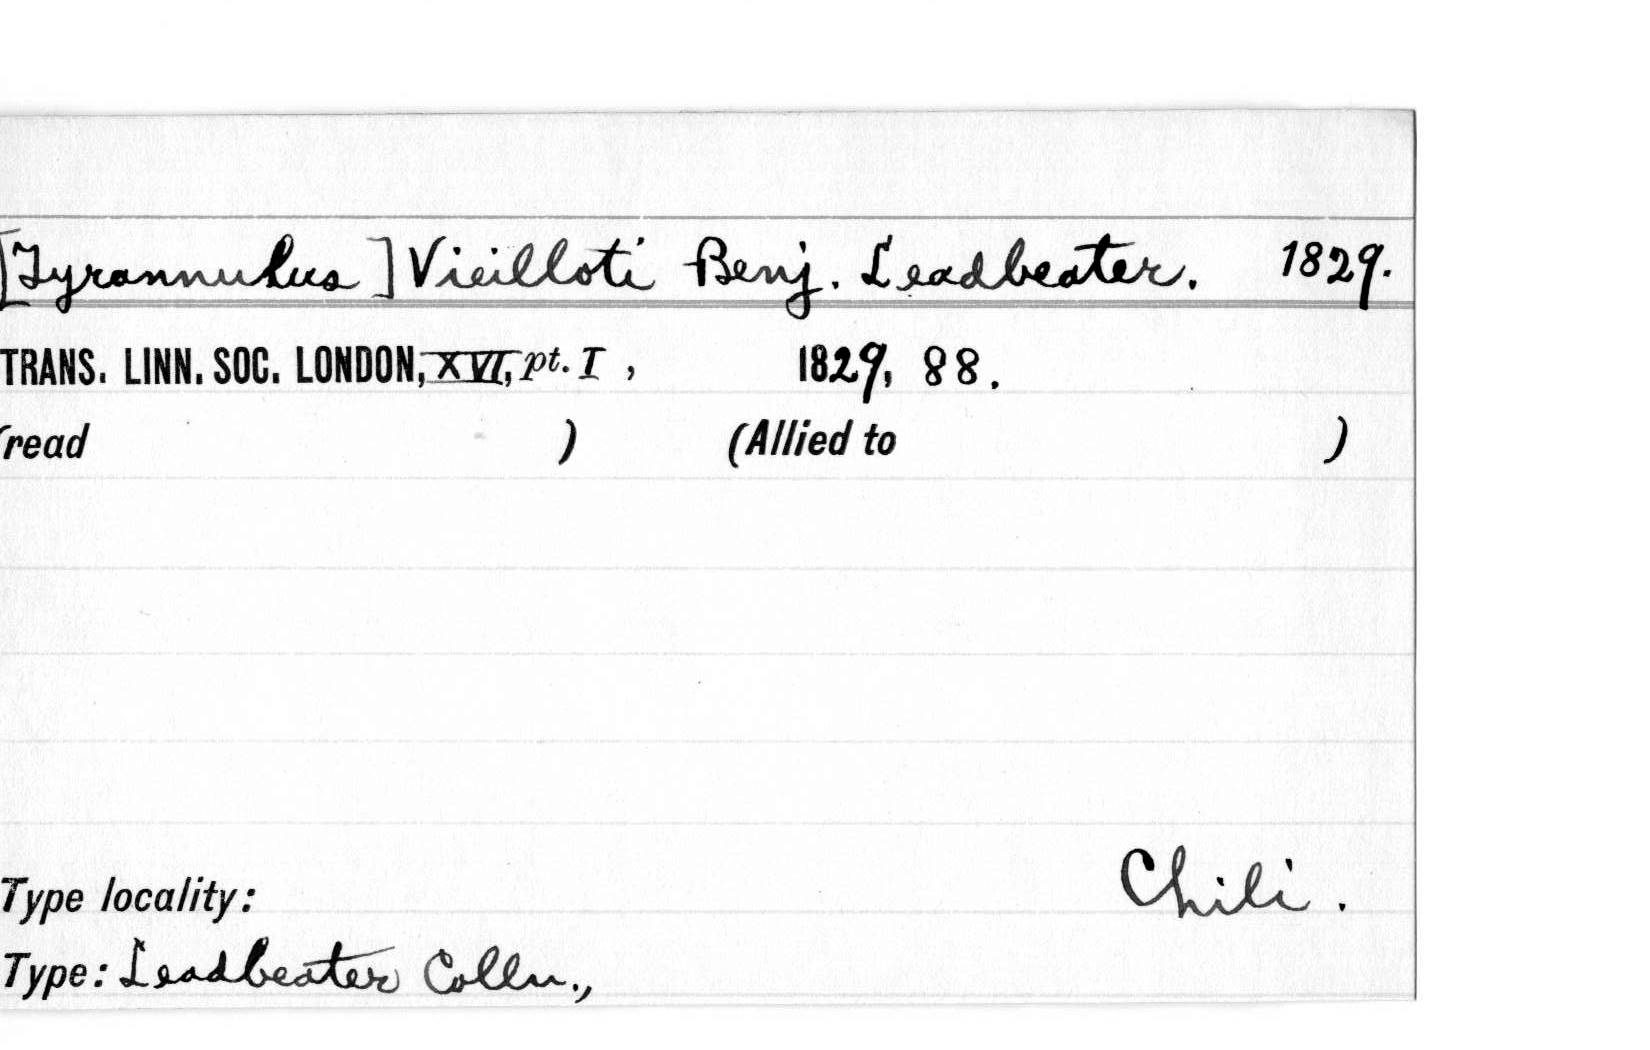 [Tyrannulus] Vieilloti Benj. Leadbeater. 1829.
TRANS. LINN. SOC. LONDON, XVI, pt. I, 1829, 88.
(read ) (Allied to )
Chili.
Type locality:
Type: Leadbeater Colln.,